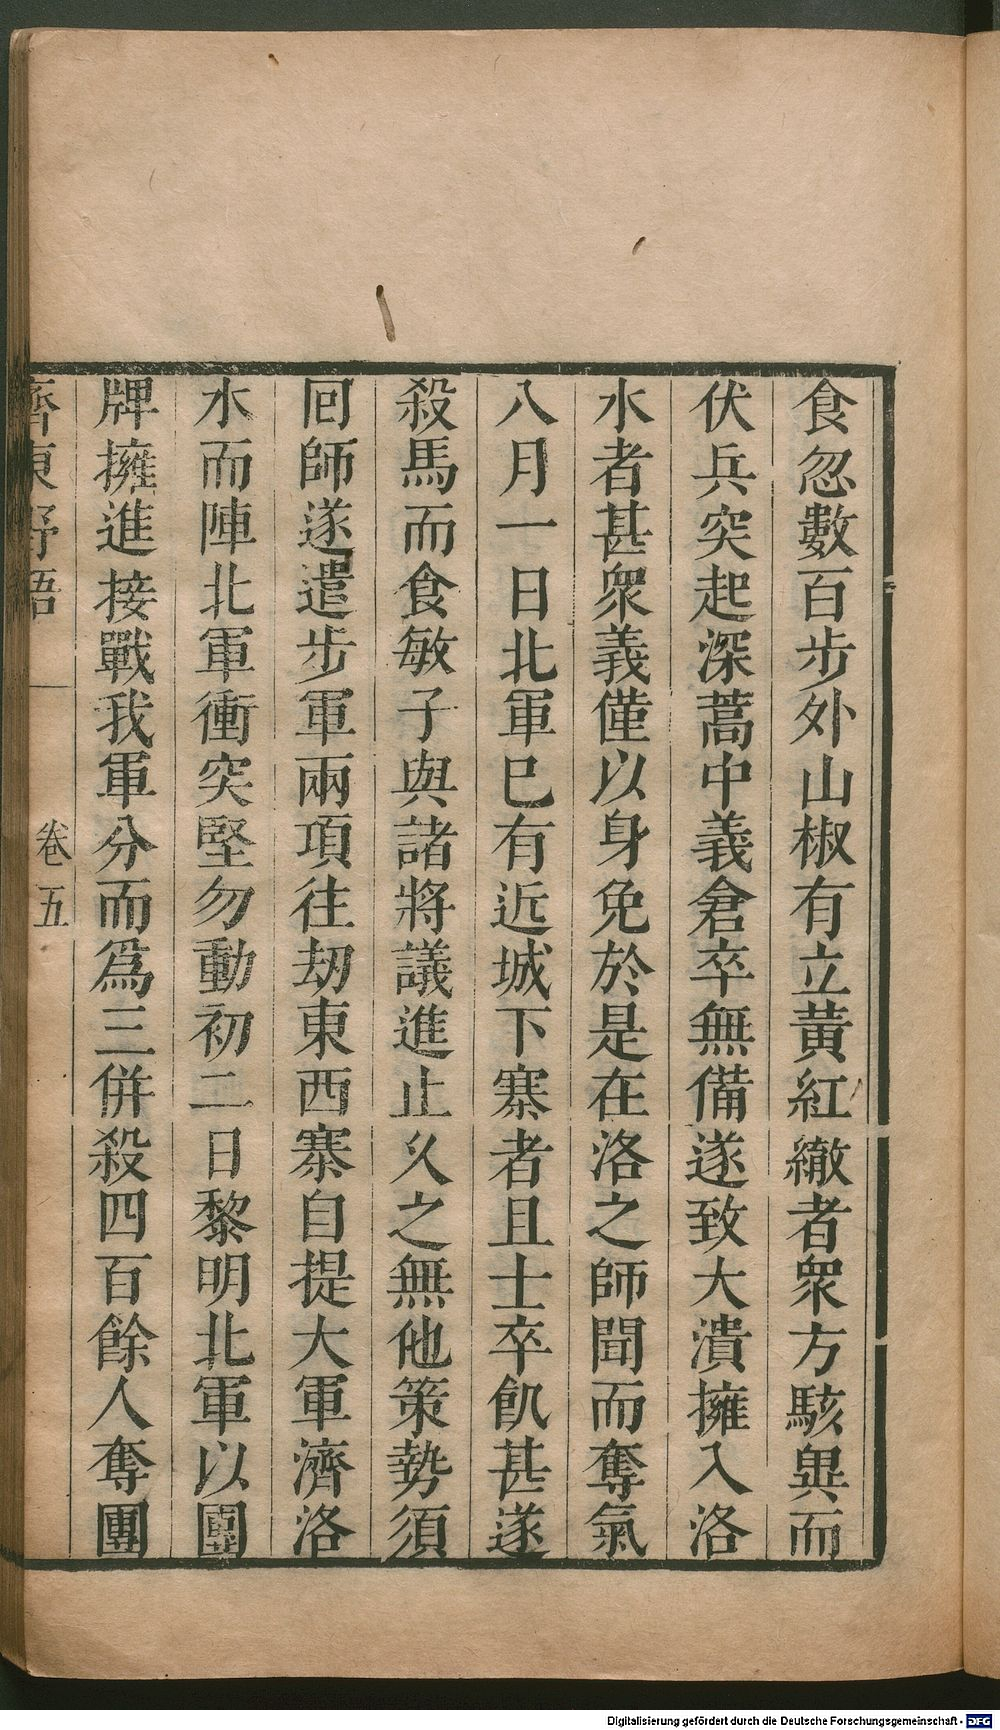 食忽數百步外山椒有立黃紅繖者衆方駭異而
伏兵突起深蒿中義倉卒無備遂致大潰擁入洛
水者甚衆義僅以身免於是在洛之師聞而奪氣
八月一日北軍已有近城下寨者且士卒飢甚遂
殺馬而食敏子與諸將議進止久之無他策勢須
回師遂遣步軍兩項往刼東西寨自提大軍濟洛
水而陣北軍衝突堅勿動初二日黎明北軍以團
牌擁進接戰我軍分而爲三併殺四百餘人奪團
齊東野語
卷五
Digitalisierung gefördert durch die Deutsche Forschungsgemeinschaft - DFG